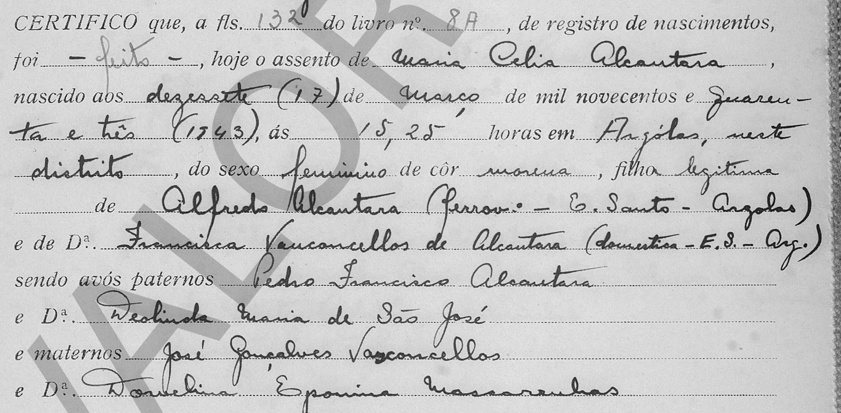 CERTIFICO que, a fls. 132º do livro nº. 8A, de registro de nascimentos,
foi - feito -, hoje o assento de Maria Celia Alcantara,
nascido aos dezessete (17) de Março de mil novecentos e quaren-
ta e três (1943), ás 15,25 horas em Argólas, neste
distrito, do sexo feminino de côr morena, filha legitima
de Alfredo Alcantara (ferrov. - E. Santo - Argolas)
e de Dª. Francisca Vasconcellos de Alcantara (domestica - E.S. - Arg.)
sendo avós paternos Pedro Francisco Alcantara
e Dª. Deolinda Maria de São José
e maternos José Gonçalves Vasconcellos
e Dª. Eponina Massarenhas
VALOR